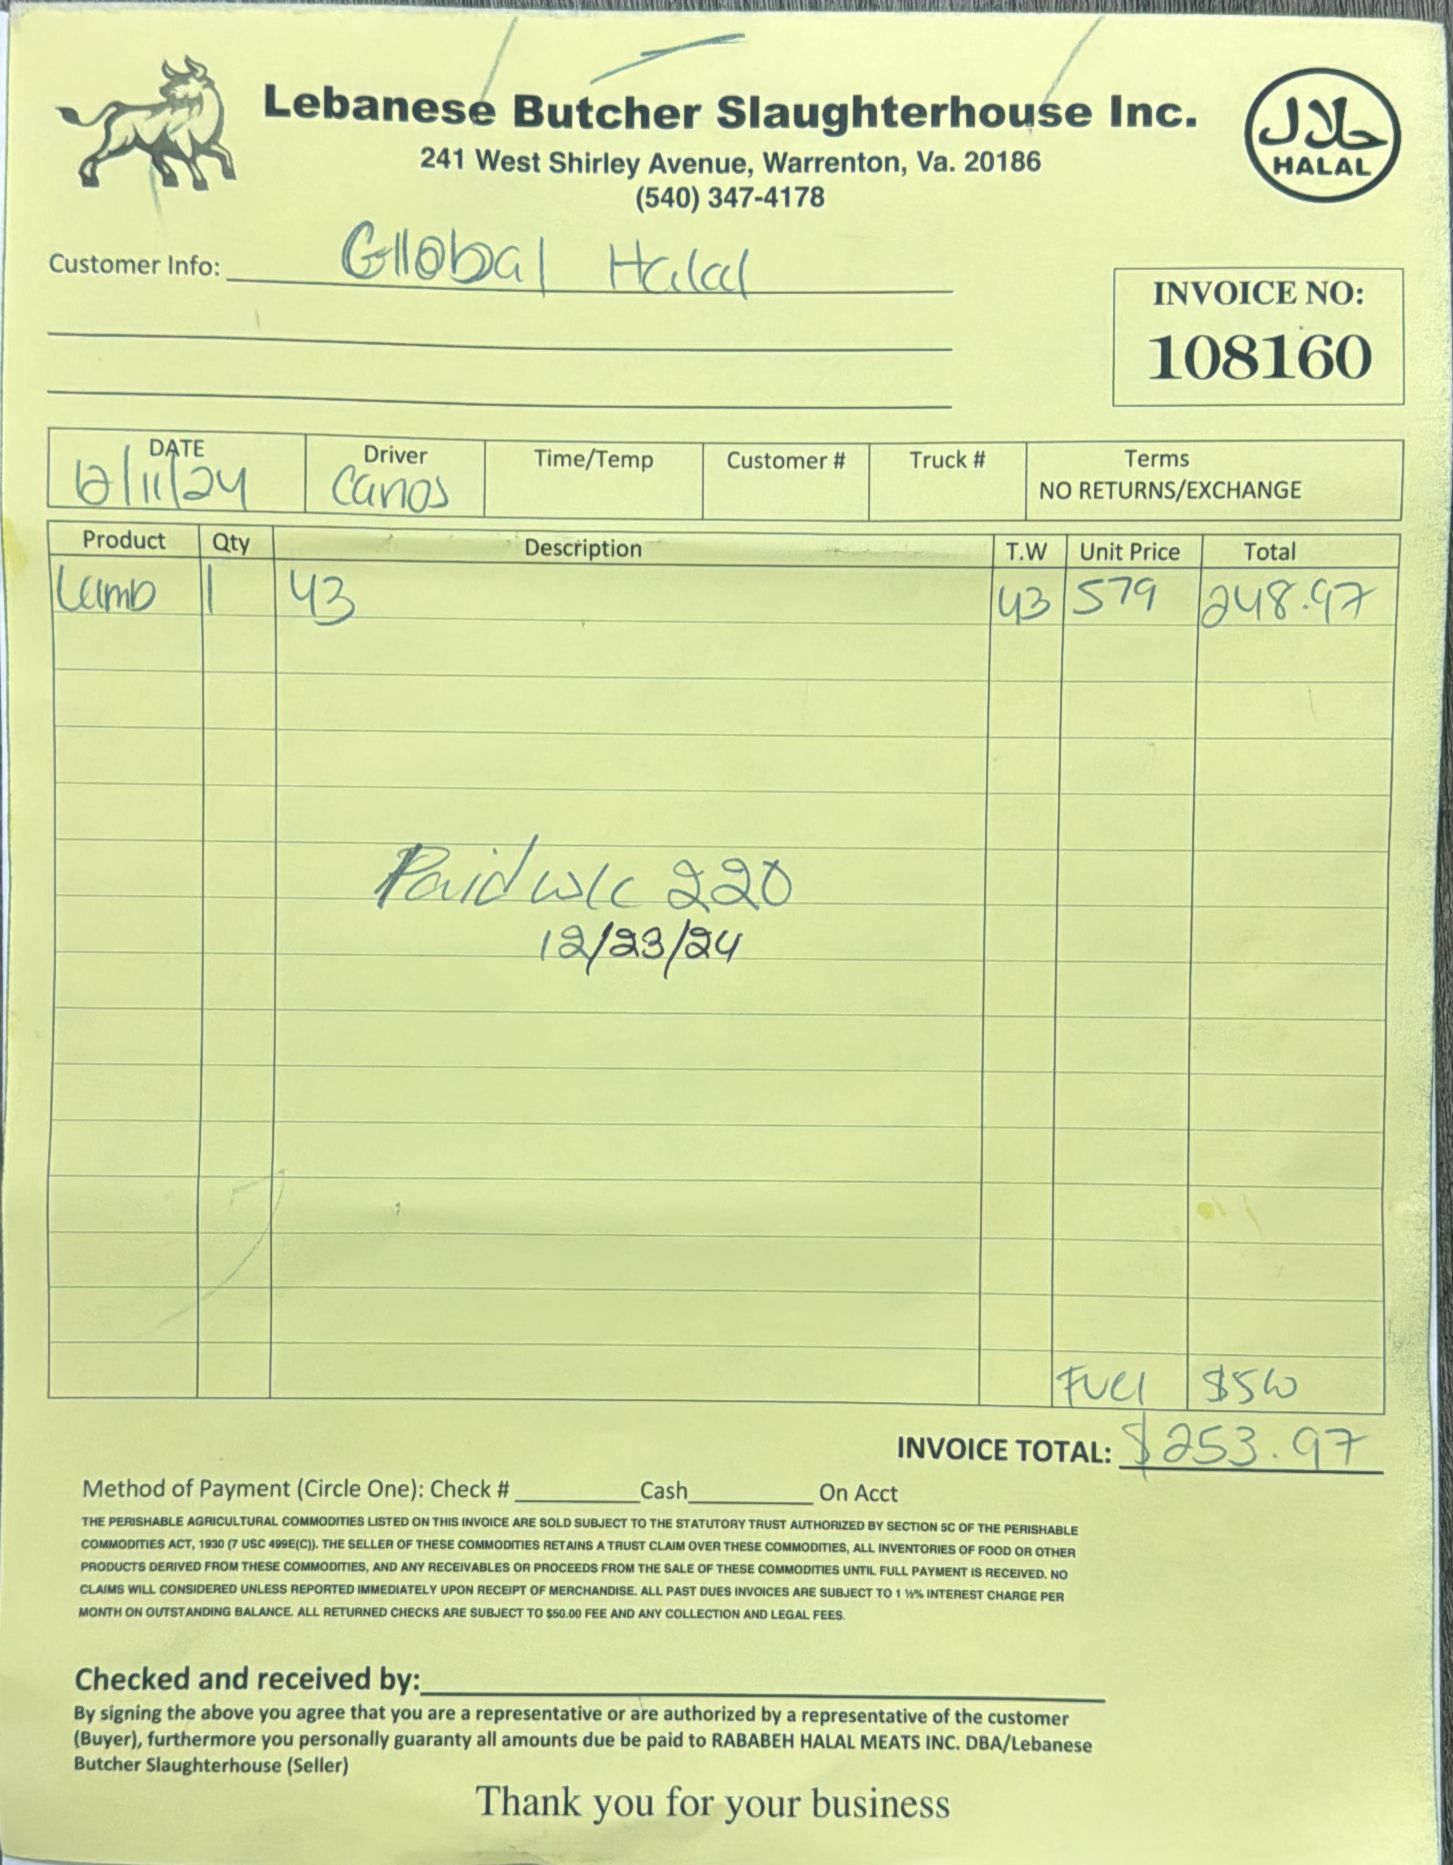 Lebanese Butcher Slaughterhouse Inc.
241 West Shirley Avenue, Warrenton, Va. 20186
(540) 347-4178
حلال
HALAL
Customer Info: Global Halal
INVOICE NO:
108160
DATE Driver Time/Temp Customer # Truck # Terms
12/11/24 Carlos NO RETURNS/EXCHANGE
Product Qty Description T.W Unit Price Total
Lamb 1 43 43 579 248.97
Paid w/c 220
12/23/24
Fuel $5 00
INVOICE TOTAL: $253.97
Method of Payment (Circle One): Check # Cash On Acct
THE PERISHABLE AGRICULTURAL COMMODITIES LISTED ON THIS INVOICE ARE SOLD SUBJECT TO THE STATUTORY TRUST AUTHORIZED BY SECTION 5C OF THE PERISHABLE
COMMODITIES ACT, 1930 (7 USC 499E(C)). THE SELLER OF THESE COMMODITIES RETAINS A TRUST CLAIM OVER THESE COMMODITIES, ALL INVENTORIES OF FOOD OR OTHER
PRODUCTS DERIVED FROM THESE COMMODITIES, AND ANY RECEIVABLES OR PROCEEDS FROM THE SALE OF THESE COMMODITIES UNTIL FULL PAYMENT IS RECEIVED. NO
CLAIMS WILL CONSIDERED UNLESS REPORTED IMMEDIATELY UPON RECEIPT OF MERCHANDISE. ALL PAST DUES INVOICES ARE SUBJECT TO 1 ½% INTEREST CHARGE PER
MONTH ON OUTSTANDING BALANCE. ALL RETURNED CHECKS ARE SUBJECT TO $50.00 FEE AND ANY COLLECTION AND LEGAL FEES.
Checked and received by:
By signing the above you agree that you are a representative or are authorized by a representative of the customer
(Buyer), furthermore you personally guaranty all amounts due be paid to RABABEH HALAL MEATS INC. DBA/Lebanese
Butcher Slaughterhouse (Seller)
Thank you for your business